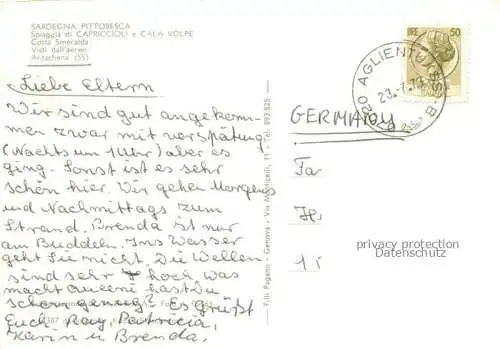 SARDEGNA PITTORESCA
Spiaggia di CAPRICCIOLI e CALA VOLPE
Costa Smeralda
Visti dall'aereo
Arzachena (SS)
LIRE 50
AGLIENTU (SS)
Liebe Eltern
Wir sind gut angekom-
men zwar mit verspätung
(Nachts um 1 Uhr) aber es
ging. Sonst ist es sehr
schön hier. Wir gehen Morgens
und Nachmittags zum
Strand. Brenda ist nur
am Buddeln. Ins Wasser
geht Sie nicht. Die Wellen
sind sehr hoch. Was
macht hast Du
schon genug? Es Grüßt
Euch Ray, Patricia,
Karin u Brenda.
F.lli Pagano - Genova - Via Monticelli, 11 - Tel. 893.825
GERMANY
Fa
H
1
privacy protection
Datenschutz